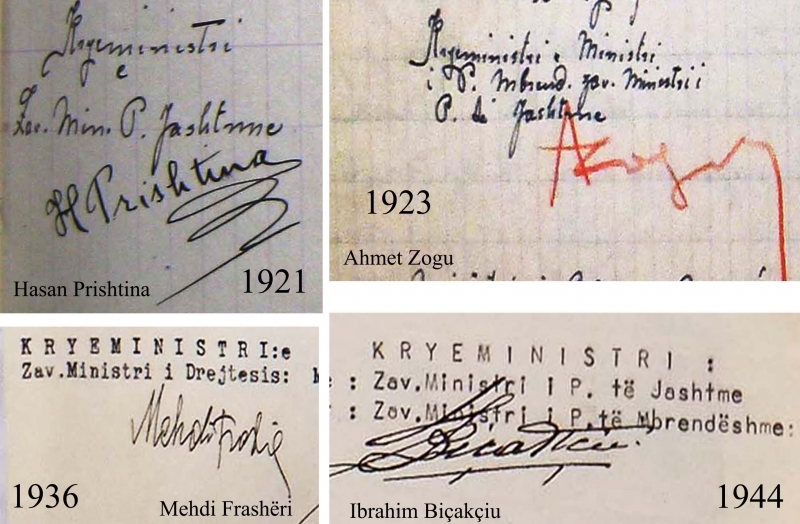 Kryeministri
e
Zav. Min. P. Jashtme
H Prishtina
1921
Hasan Prishtina
Kryeministri e Ministri
i P. Mbrend. zav. Ministri i
P. të Jashtme
AZogu
1923
Ahmet Zogu
KRYEMINISTRI:e
Zav.Ministri i Drejtesis:
Mehdi Frashëri
1936
Mehdi Frashëri
KRYEMINISTRI :
: Zav.Ministri i P. të Jashtme
: Zav.Ministri i P.të Mbrendëshme:
Biçakçiu
1944
Ibrahim Biçakçiu